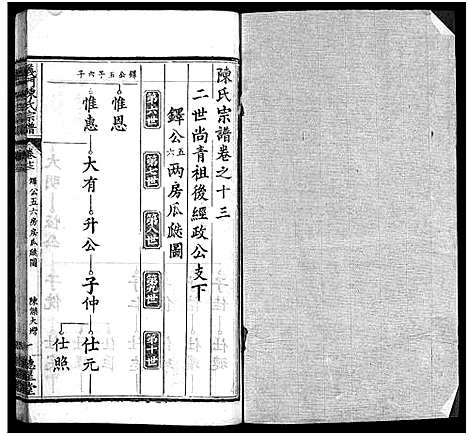 陳氏宗譜卷之十三
二世尚青祖後經政公支下
鐸公五六兩房瓜瓞圖
第六世
第七世
第八世
第九世
第十世
鐸公五子六子
惟恩
惟惠
大有
升公
子仲
仕元
仕照
義門陳氏宗譜
卷十三
鐸公五六房瓜瓞圖
陳傑大塆
一
德星堂